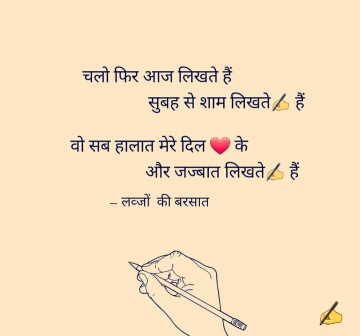 चलो फिर आज लिखते हैं
सुबह से शाम लिखते✍️ हैं
वो सब हालात मेरे दिल ❤️ के
और जज्बात लिखते✍️ हैं
– लव्जों की बरसात
✍️